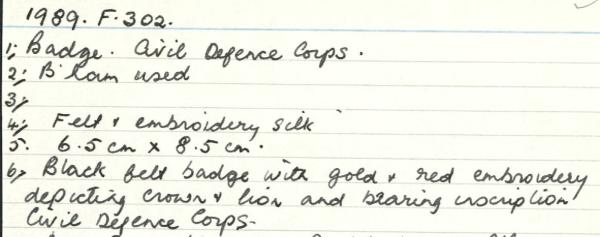 1989. F. 302.
1; Badge. Civil Defence Corps.
2; B'ham used
3;
4; Felt & embroidery silk
5. 6.5 cm x 8.5 cm.
6; Black felt badge with gold & red embroidery
depicting crown & lion and bearing inscription
Civil Defence Corps-